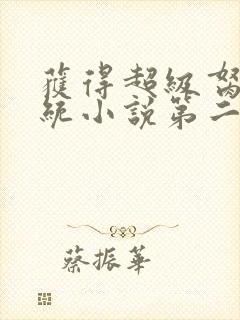 獲得超級
統小說第二
蔡振華